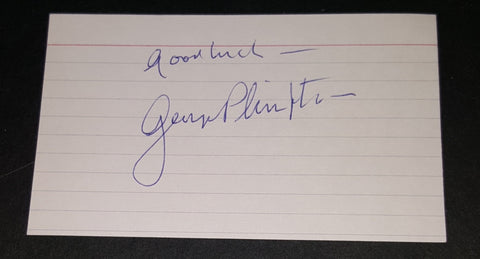 Good luck —
George Plimpton —